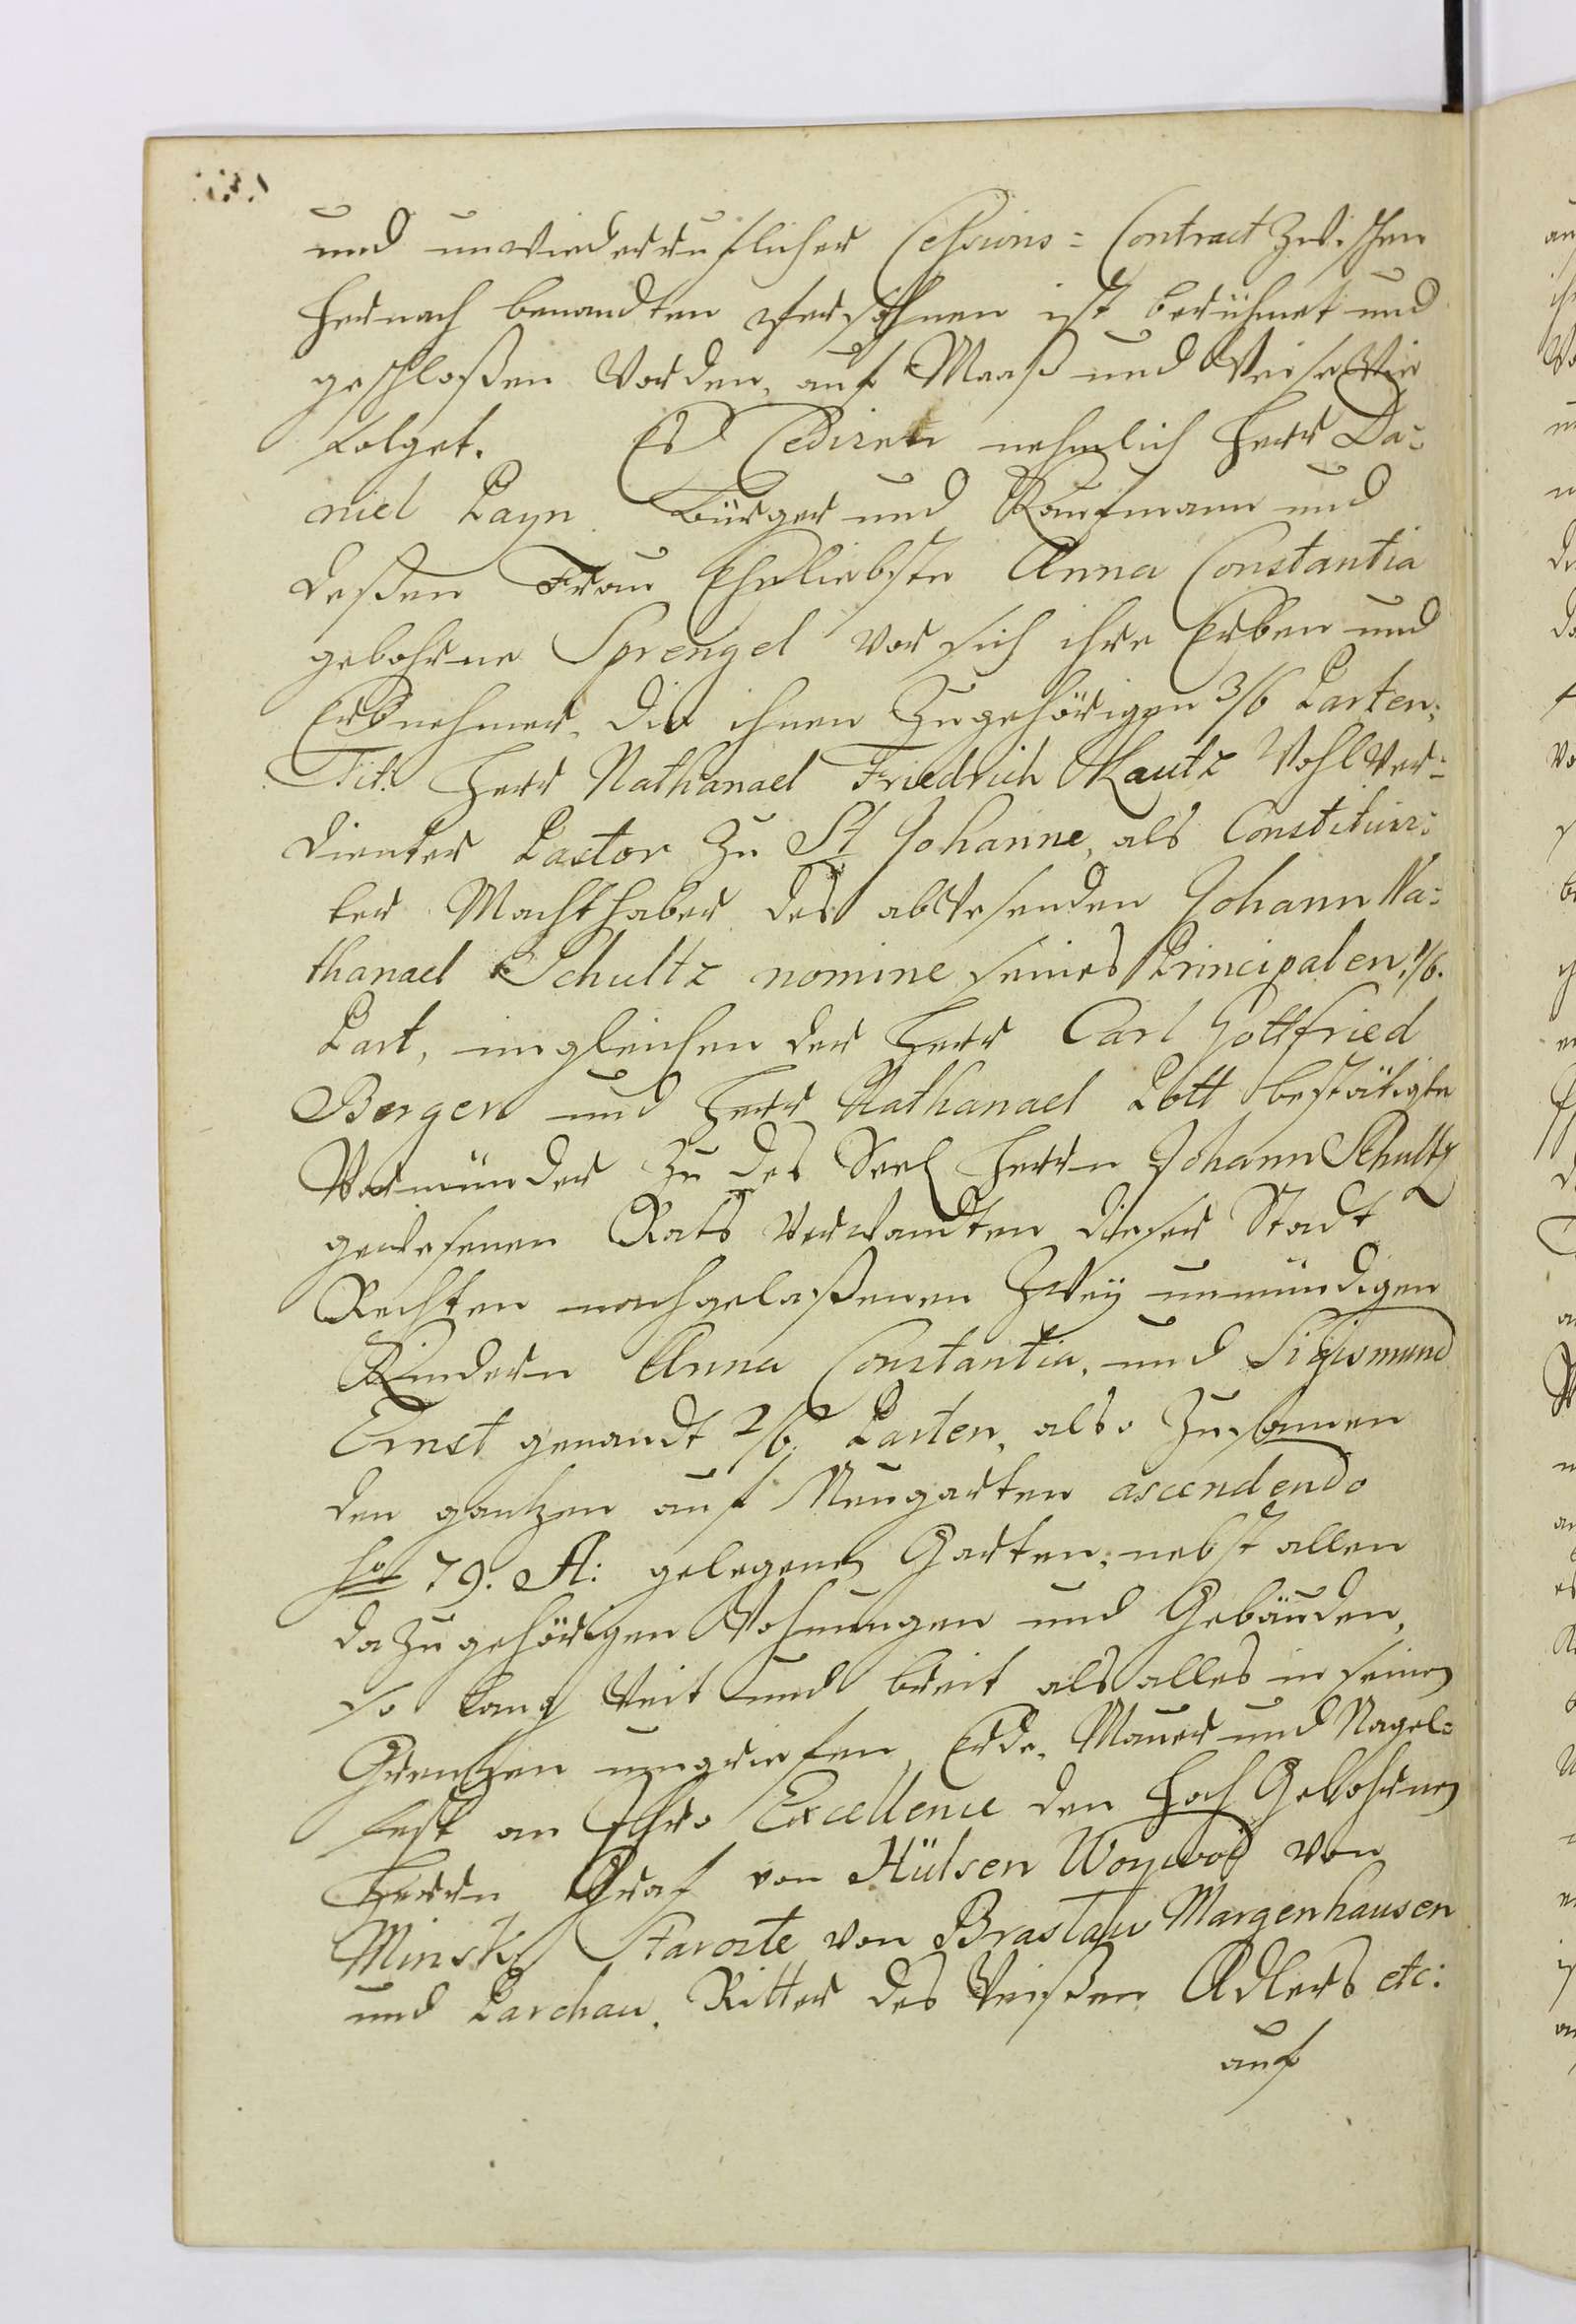 und unwiederruflicher Cessions= Contract zwischen
hernach benandten persohnen ist berühmet und
geschloßen worden, auf Maaß und Weise Wie
folget. Es Cediren nehmlich Herr Da=
niel Payn Bürger und Kaufmann und
deßen Frau Eheliebste Anna Constantia
gebohrne Sprengel vor sich ihre Erben und
Erbnehmer, die ihnen Zugehörigen 3/6 Parten,
Tit: Herr Nathanael Friedrich Kautz Wohl Ver=
dienter Pastor zu St Johanne, als Constituir=
ter Machthaber des abwesenden Johann Na=
thanael Schultz nomine seines Principalen, 1/6.
Part, imgleichen der Herr Carl Gottfried
Bergen und Herr Nathanael Pott bestätigte
Vormünder zu des Seel Herrn Johann Schultz
gewesenen Rats Verwandten dieser Stadt
Rechten nachgelaßenen Zwey unmündigen
Kindern Anna Constantia, und Sigismund
Ernst genandt 2/6. Parten, also Zusamen
den gantzen auf Neugarten ascendendo
fol 79. A: gelegenen Garten, nebst allen
dazu gehörigen Wohnungen und Gebäuden,
so lang Weit und breit als alles in seinen
Grentzen umgriefen, Erde, Mauer und Nagel=
fest an Ihro Excellence den Hoch Gebohrnen
Herrn Graf von Hülsen Woywod von
Minsk, Staroste von Braslaw Margenhausen
und Parchau, Ritter des Weißen Adlers etc:
auf